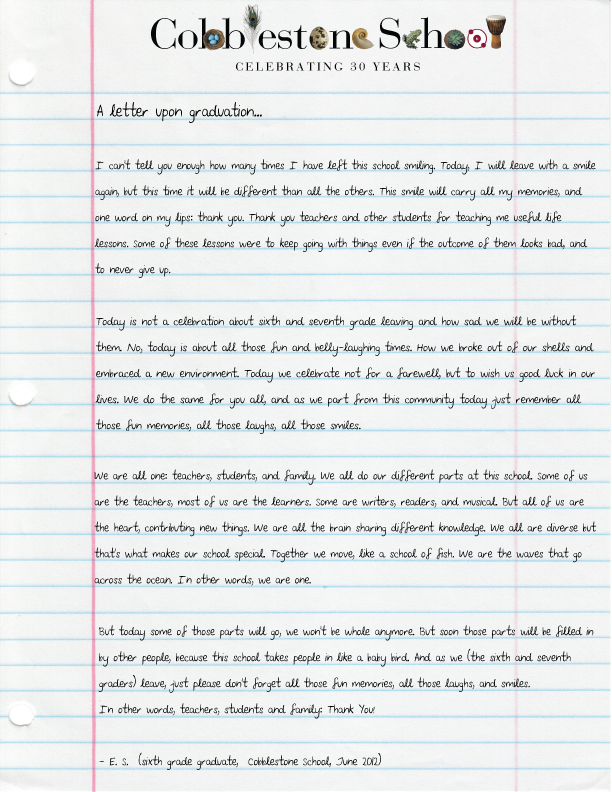 Cobblestone School
CELEBRATING 30 YEARS
A letter upon graduation...
I can't tell you enough how many times I have left this school smiling. Today, I will leave with a smile
again, but this time it will be different than all the others. This smile will carry all my memories, and
one word on my lips: thank you. Thank you teachers and other students for teaching me useful life
lessons. Some of these lessons were to keep going with things even if the outcome of them looks bad, and
to never give up.
Today is not a celebration about sixth and seventh grade leaving and how sad we will be without
them. No, today is about all those fun and belly-laughing times. How we broke out of our shells and
embraced a new environment. Today we celebrate not for a farewell, but to wish us good luck in our
lives. We do the same for you all, and as we part from this community today just remember all
those fun memories, all those laughs, all those smiles.
We are all one: teachers, students, and family. We all do our different parts at this school. Some of us
are the teachers, most of us are the learners. Some are writers, readers, and musical. But all of us are
the heart, contributing new things. We are all the brain sharing different knowledge. We all are diverse but
that's what makes our school special. Together we move, like a school of fish. We are the waves that go
across the ocean. In other words, we are one.
But today some of those parts will go, we won't be whole anymore. But soon those parts will be filled in
by other people, because this school takes people in like a baby bird. And as we (the sixth and seventh
graders) leave, just please don't forget all those fun memories, all those laughs, and smiles.
In other words, teachers, students and family: Thank You!
- E. S. (sixth grade graduate, Cobblestone School, June 2012)